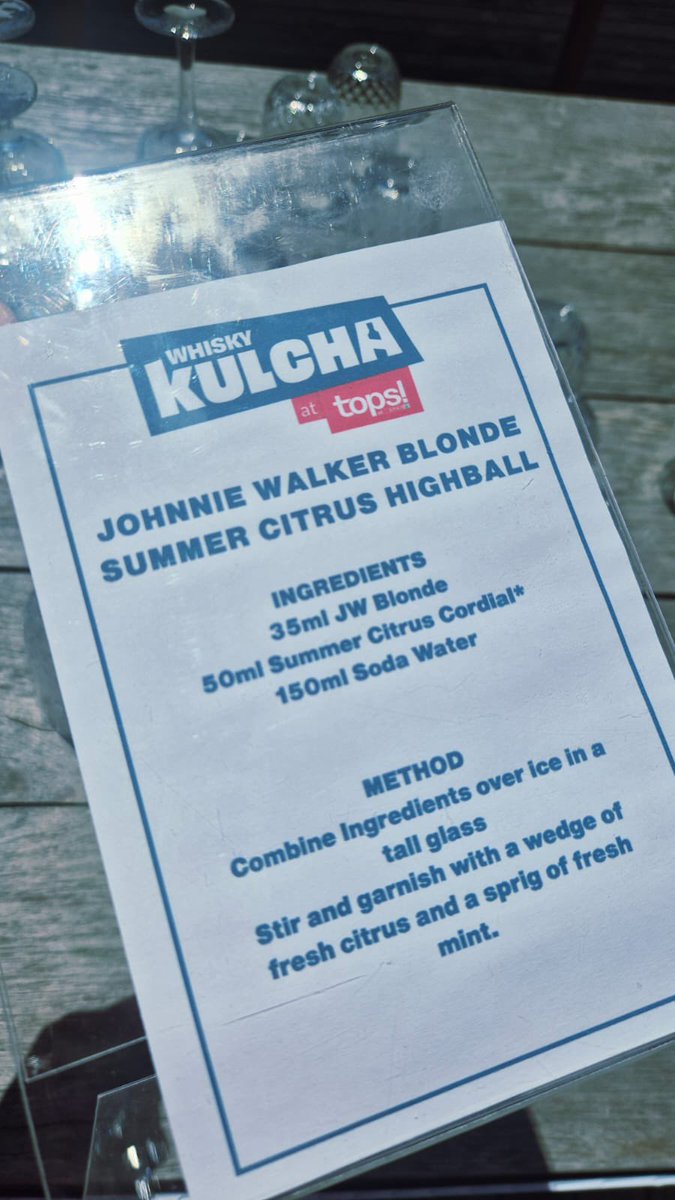 WHISKY
KULCHA
at tops!
JOHNNIE WALKER BLONDE
SUMMER CITRUS HIGHBALL
INGREDIENTS
35ml JW Blonde
50ml Summer Citrus Cordial*
150ml Soda Water
METHOD
Combine Ingredients over ice in a
tall glass
Stir and garnish with a wedge of
fresh citrus and a sprig of fresh
mint.